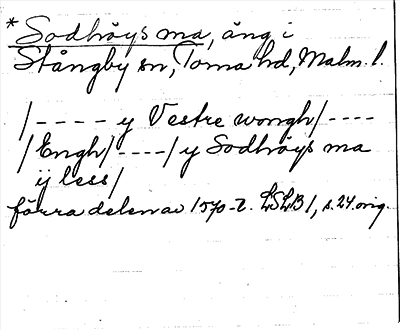 *Sodhöys ma, äng i
Stångby sn, Torna hd, Malm. l.
/---- y Vestre wongh/----
/Engh/----/y Sodhöys ma
ij less/
förra delen av 1570-t. LSLB 1, s. 24. orig.